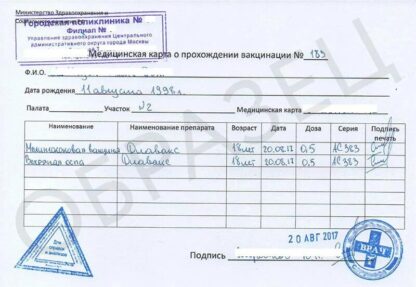 Министерство Здравоохранения и
Городская поликлиника №
Филиал №
Управление здравоохранения Центрального
административного округа города Москвы
Медицинская карта о прохождении вакцинации № 189
Ф.И.О.
Дата рождения 11 августа 1998 г.
Палата Участок №2 Медицинская карта
Наименование Наименование препарата Возраст Дата Доза Серия Подпись печать
вакцина Флавакс 18 лет 20.08.17 0,5 АС383
Ветряная оспа Флавакс 18 лет 20.08.17 0,5 АС383
ОБРАЗЕЦ
Для справок и анализов
20 АВГ 2017
ВРАЧ
Подпись